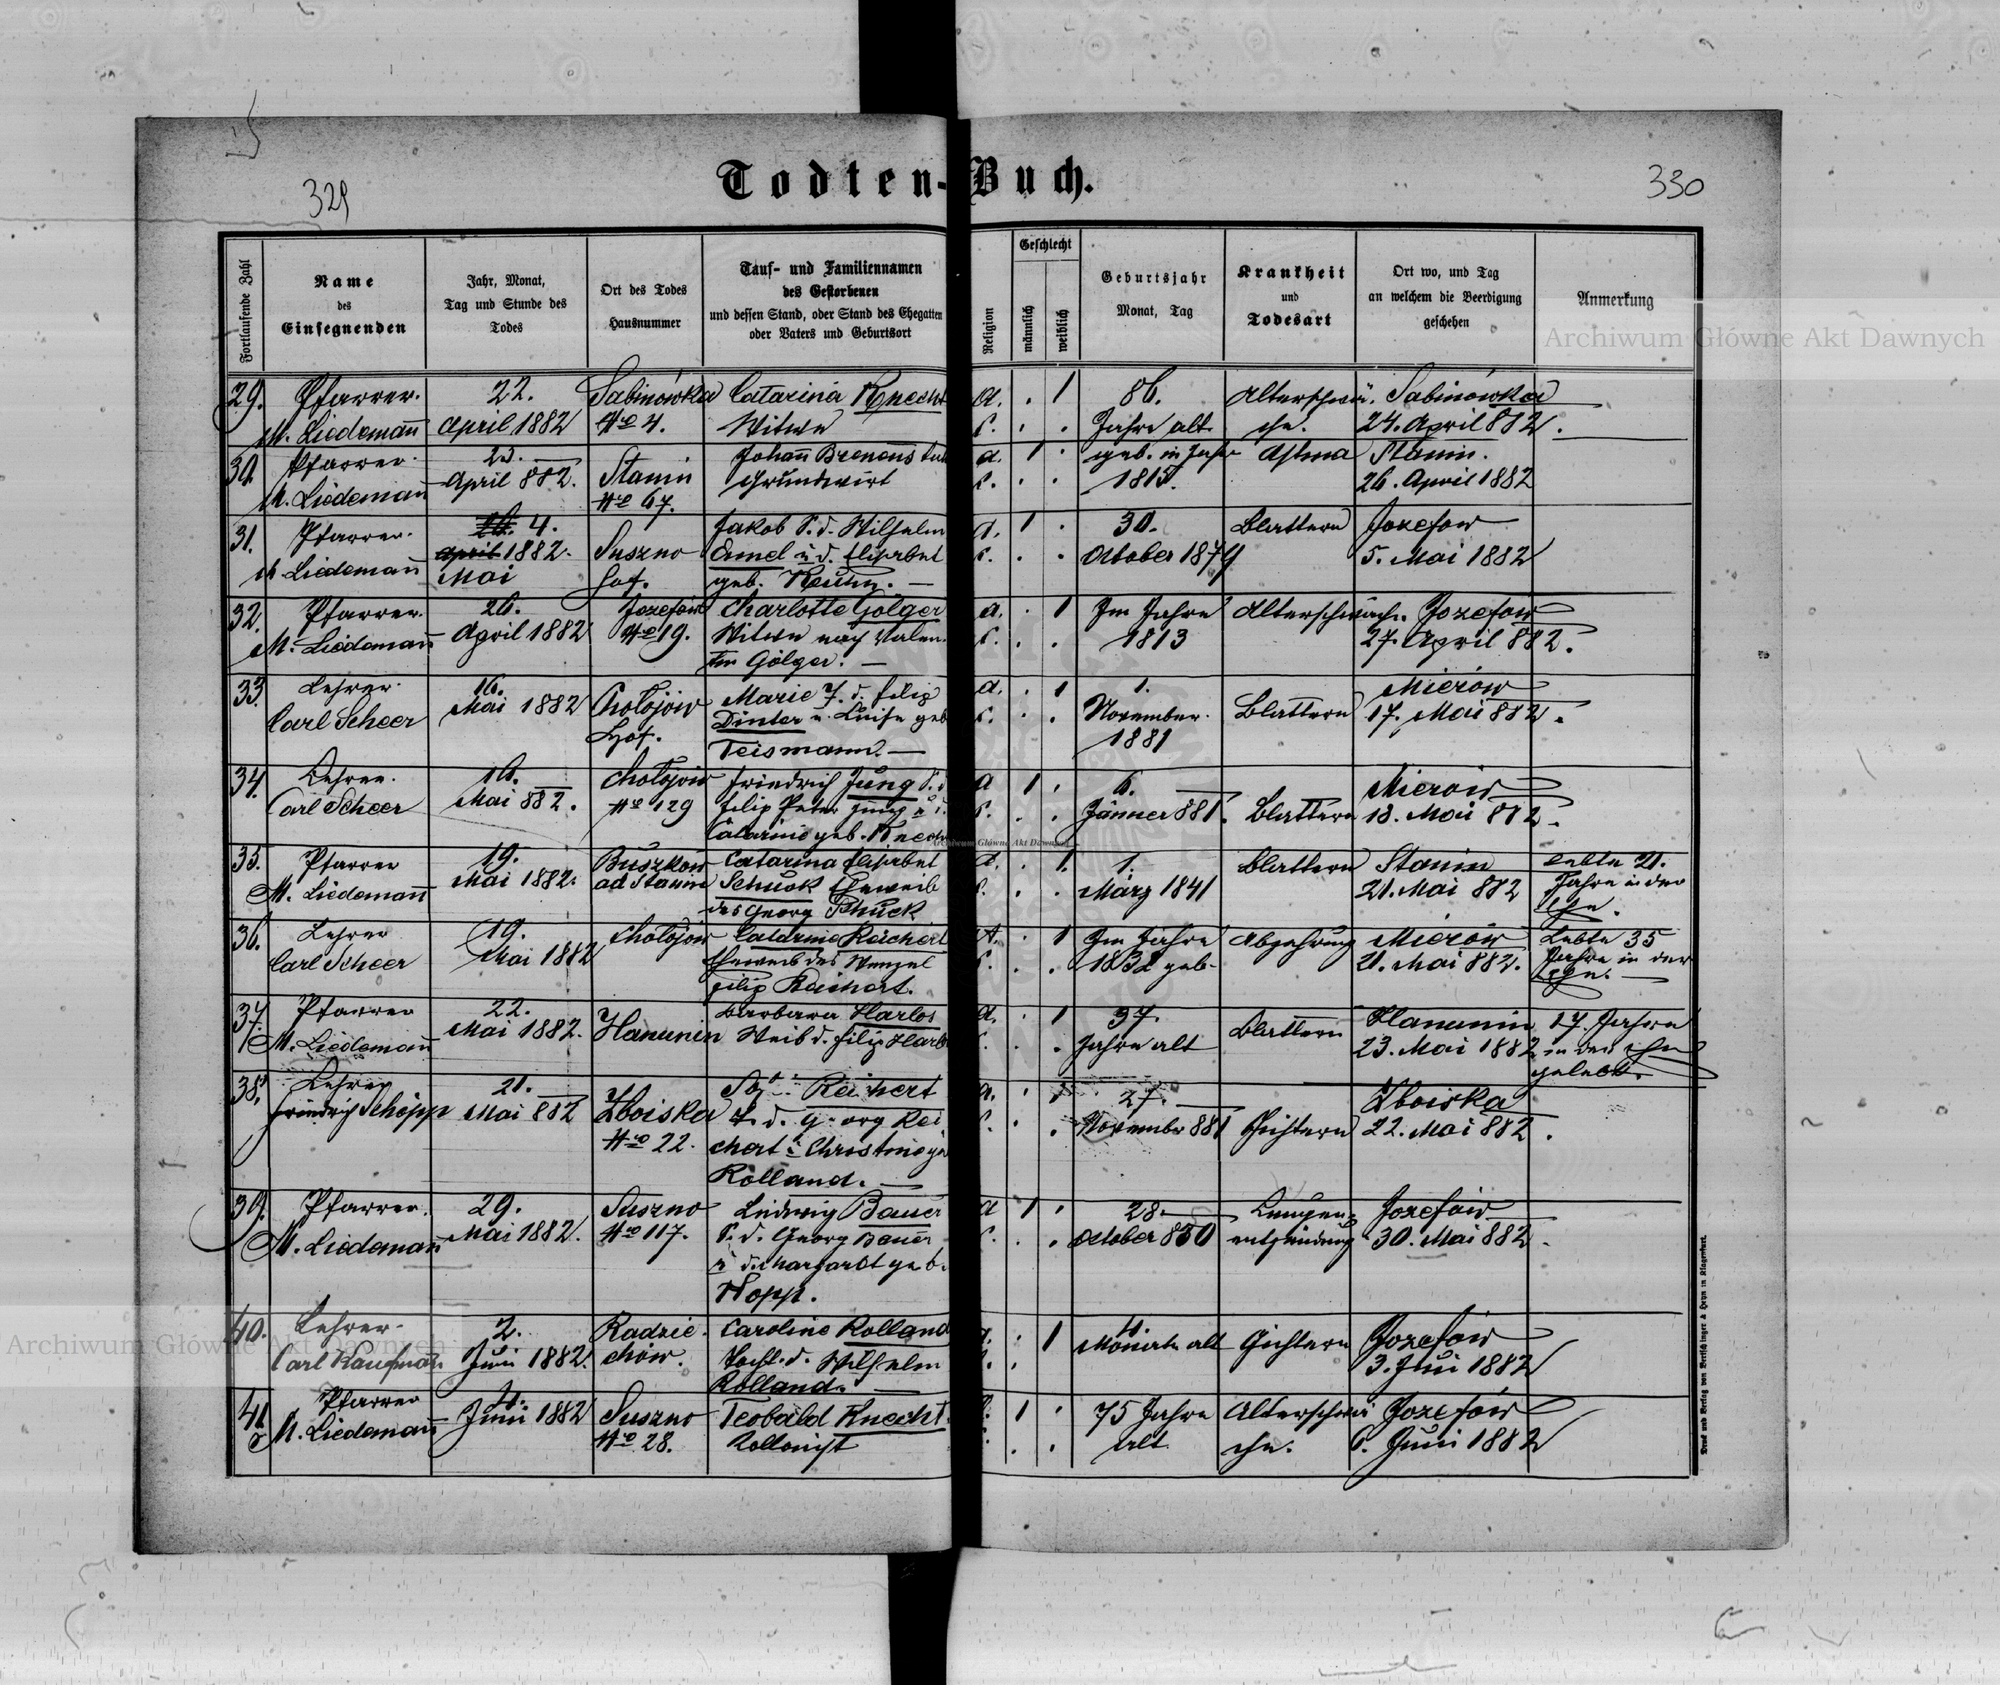 329
Todten-Buch.
330
Fortlaufende Zahl
Name
des
Einsegnenden
Jahr, Monat,
Tag und Stunde des
Todes
Ort des Todes
Hausnummer
Tauf- und Familiennamen
des Gestorbenen
und dessen Stand, oder Stand des Ehegatten
oder Vaters und Geburtsort
Religion
Geschlecht
männlich
weiblich
Geburtsjahr
Monat, Tag
Krankheit
und
Todesart
Ort wo, und Tag
an welchem die Beerdigung
geschehen
Anmerkung
Archiwum Główne Akt Dawnych
29. Pfarrer. 22. Sabinówka Catarina Knecht a. . 1 86. Altersschwä. Sabinówka
M. Liedemañ April 1882 No 4. Witwe C. . . Jahre alt che. 24. April 882.
30. Pfarrer. 23. Johañ a. 1 . geb. im Jahre Astma Stanin.
M. Liedemañ April 882. Stanin Grundwirt C. . . 1815. 26. April 1882
No 67.
31. Pfarrer. 4. Jakob S. d. Wilhelm a. 1 . 30. Blattern Jozefow
M Liedemañ 1882. Suszno Emel u. d. Elisabet C. . . October 1879 5. Mai 1882
Mai Hof. geb.
32. Pfarrer. 26. Jozefów Charlotte Golger a. . 1 Im Jahre Altersschwäche. Jozefow
M. Liedemañ April 1882 No 19. Witwe nach Valen- C. . . 1813 27. April 882.
tin Golger.
33. Lehrer. 16. Marie T. d. Filip a. . 1 1. Mierów
Carl Scheer Mai 1882 Chołojow Dinter u. Luise geb C. . . November. Blattern 17. Mai 882.
Hof. Teismann. 1881
34. Lehrer. 16. Chołojow Friedrich Jung S. d a 1 . 6. Mierów
Carl Scheer Mai 882. No 129 Filip Peter Jung u. d. C. . . Jänner 881. Blattern 18. Mai 882.
Catarine geb. Knecht
35. Pfarrer 19. Buszków Catarina Elisabet a. . 1. 1. Blattern Stanin Lebte 21.
M. Liedemañ Mai 1882. ad Stanin Schuck Eheweib C. . . März 1841 21. Mai 882 Jahre in der
des Georg Schuck Ehe.
36. Lehrer 19. Chołojow Catarine Reichert A. . 1 Im Jahre Abzehrung Mierów Lebte 35
Carl Scheer Mai 1882 Eheweib des Wenzel C. . . geb. 21. Mai 882. Jahre in der
Filip Reichert. Ehe.
37. Pfarrer 22. Barbara Harlos a. . 1 37. Blattern Hanunin 17. Jahre
M. Liedemañ Mai 1882. Hanunin Weib d. Filip Harlos . . Jahre alt 23. Mai 1882 in der Ehe
gelebt.
38. Lehrer 21. Reichert a. . 1 27. Zboiska
Friedrich Schöpp Mai 882 Zboiska T. d. Georg Rei C. . . November 881 Gichtern 22. Mai 882.
No 22. chert u. Christine geb
Rolland.
39. Pfarrer. 29. Suszno Ludwig Bauer a 1 . 28. Lungen- Jozefow
M. Liedemañ Mai 1882. No 117. S. d. Georg Bauer C. . . October 850 entzündung 30. Mai 882.
u. d. Margaret geb.
Hopp.
40. Lehrer. 2. Radzie- Caroline Rolland a. . 1 4. Gichtern Jozefow
Carl Kaufman Juni 1882. chów. Tocht. d. Wilhelm C. . Monate alt 3. Juni 1882
Rolland.
41. Pfarrer 4. Suszno Teobald Knecht 1 . 75 Jahre Altersschwä Jozefów
M. Liedemañ Juni 1882 No 28. Kollonist . . alt che. 6. Juni 1882
Archiwum Główne Akt Dawnych
Archiwum Główne Akt Dawnych
Druck und Verlag von Bertschinger & Heyn in Klagenfurt.